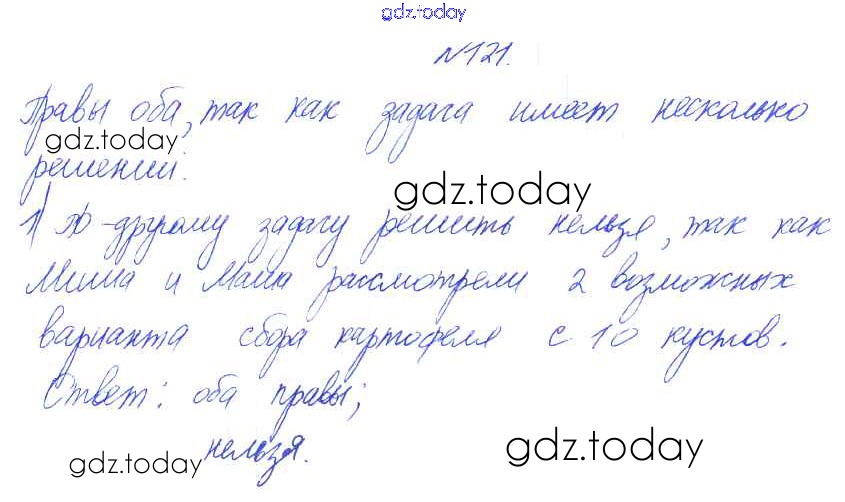 gdz.today
№121.
Правы оба, так как задача имеет несколько
gdz.today
решений.
gdz.today
1) По-другому задачу решить нельзя, так как
Миша и Маша рассмотрели 2 возможных
варианта сбора картофеля с 10 кустов.
Ответ: оба правы;
нельзя.
gdz.today
gdz.today